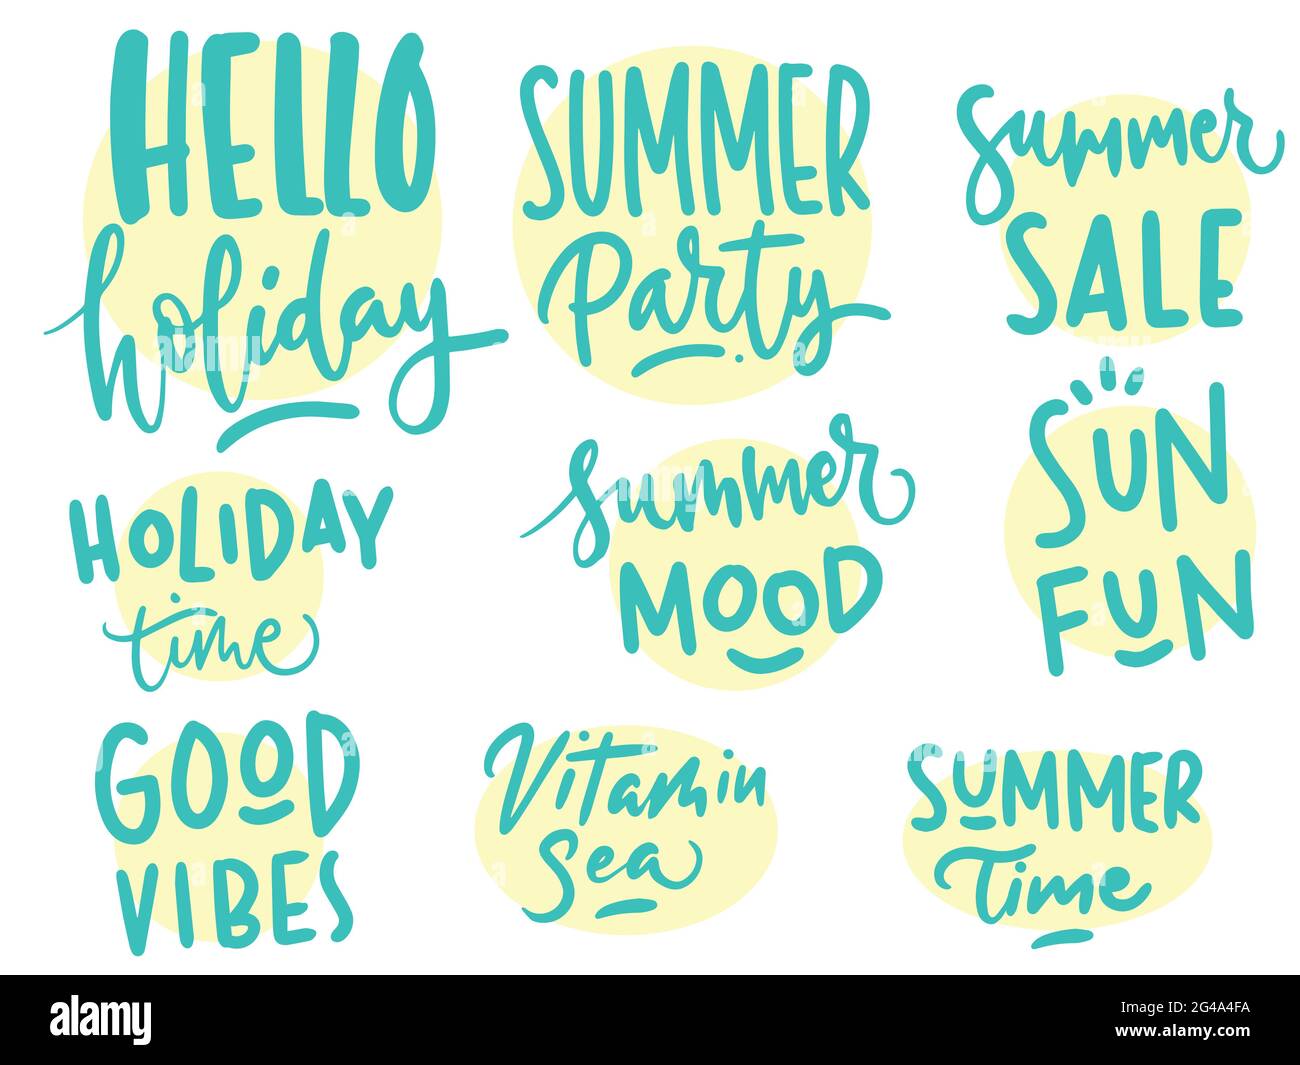 HELLO
holiday
SUMMER
Party
Summer
SALE
HOLIDAY
time
Summer
MOOD
SUN
FUN
GOOD
VIBES
Vitamin
Sea
SUMMER
Time
alamy
Image ID: 2G4A4FA
www.alamy.com